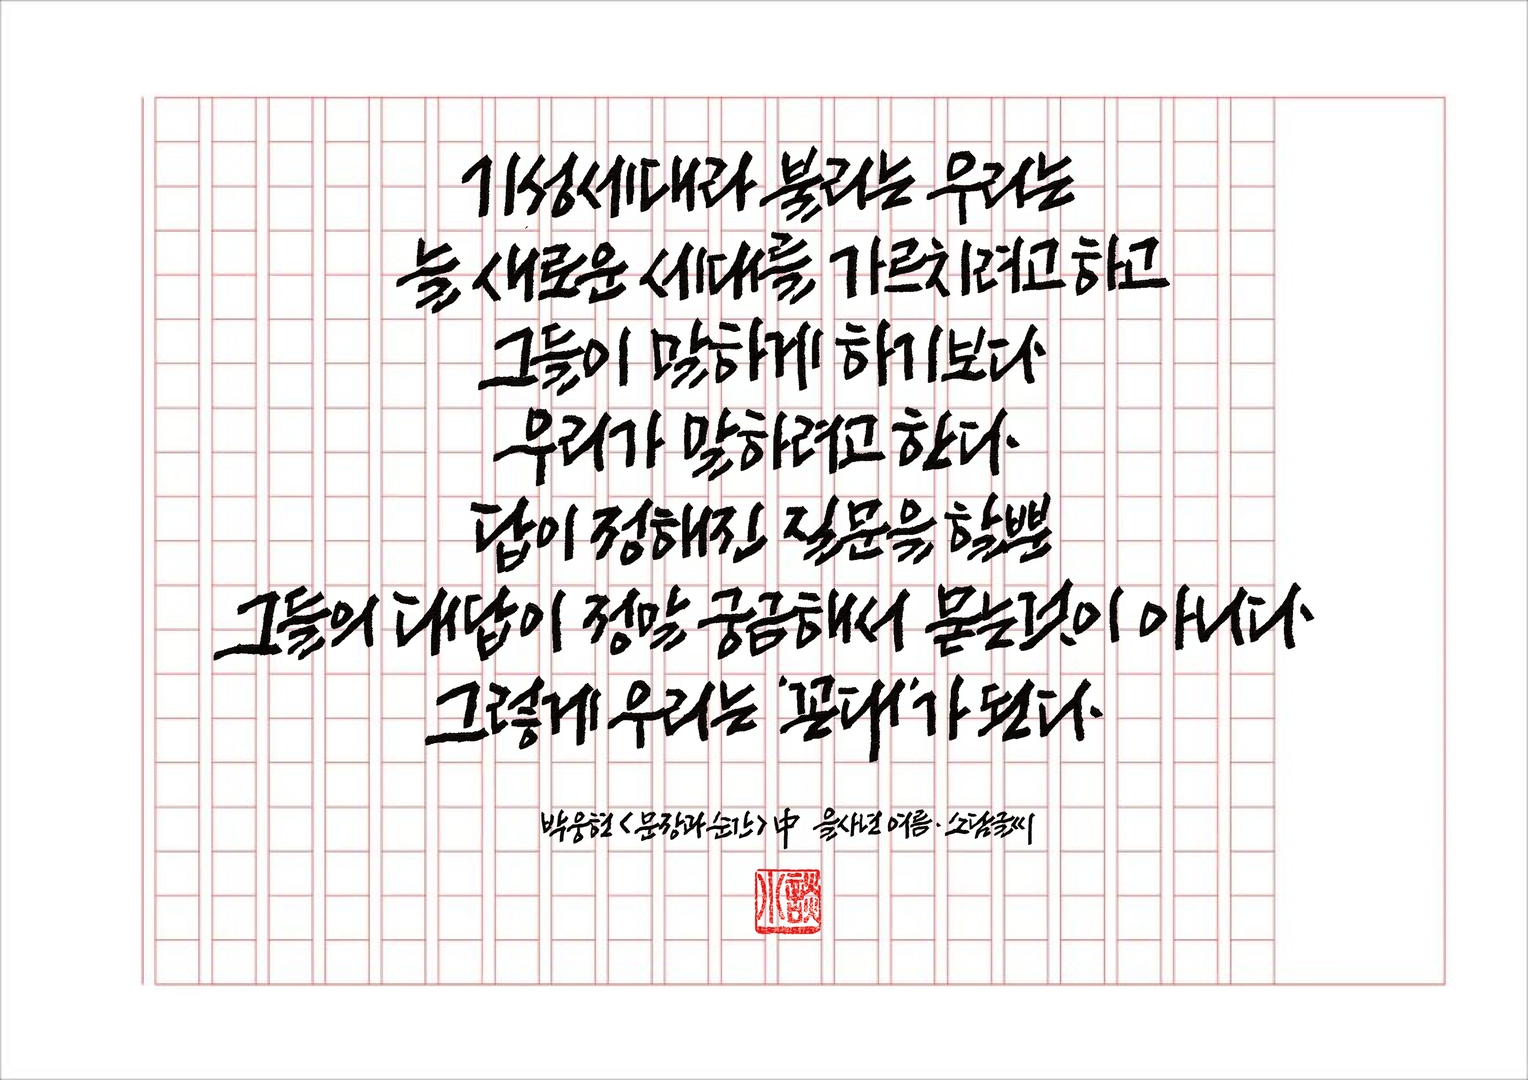 기성세대라 불리는 우리는
늘 새로운 세대를 가르치려고하고
그들이 말하게 하기보다
우리가 말하려고 한다.
답이 정해진 질문을 할뿐
그들의 대답이 정말 궁금해서 묻는것이 아니다.
그렇게 우리는 '꼰대'가 된다.
박웅현 <문장과 순간> 中 을사년 여름·소담글씨
小談